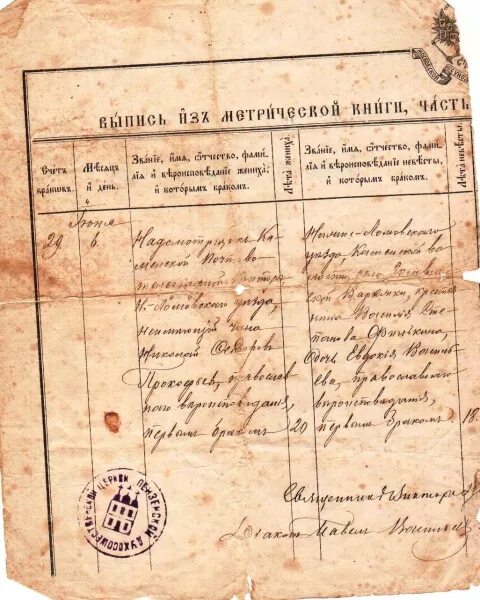 ВЫПИСЬ ИЗЪ МЕТРИЧЕСКОЙ КНИГИ, ЧАСТЬ
Счетъ браковъ.
Мѣсяцъ и день.
Званіе, имя, отчество, фамилія и вѣроисповѣданіе жениха, и которымъ бракомъ.
Лѣта жениха.
Званіе, имя, отчество, фамилія и вѣроисповѣданіе невѣсты, и которымъ бракомъ.
Лѣта невѣсты.
Іюня
29
6.
Надсмотрщикъ Ка-
менской Почтово-
телеграфной конторы
Н.-Ломовскаго уѣзда,
неимѣющій чина
Николай Ѳедоровъ
Прокофьевъ, православ-
наго вѣроисповѣданія,
первымъ бракомъ
20
Нижне-Ломовскаго
уѣзда
Варежки, крестья-
нина Василія Сте-
панова
дочь Евдокія Василь-
ева, православнаго
вѣроисповѣданія,
первымъ бракомъ.
18
Священникъ Викторъ
Діаконъ Павелъ
ПЕНЗЕНСКОЙ ДУХОСОШЕСТВЕНСКОЙ ЦЕРКВИ